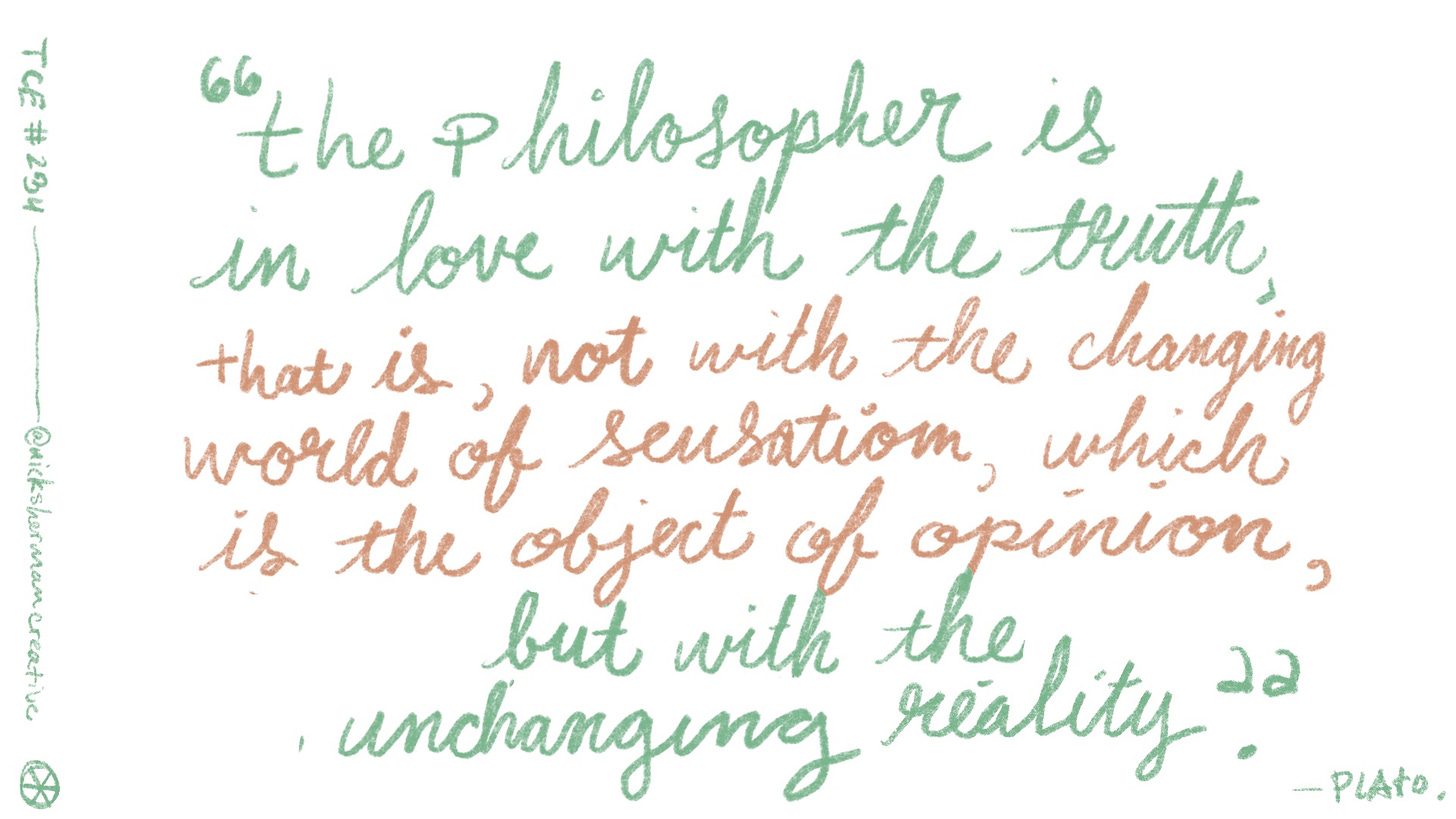 "the Philosopher is
in love with the truth,
that is, not with the changing
world of sensation, which
is the object of opinion,
but with the
unchanging reality."
—PLAto.
TCE #234 — @nickshermancreative